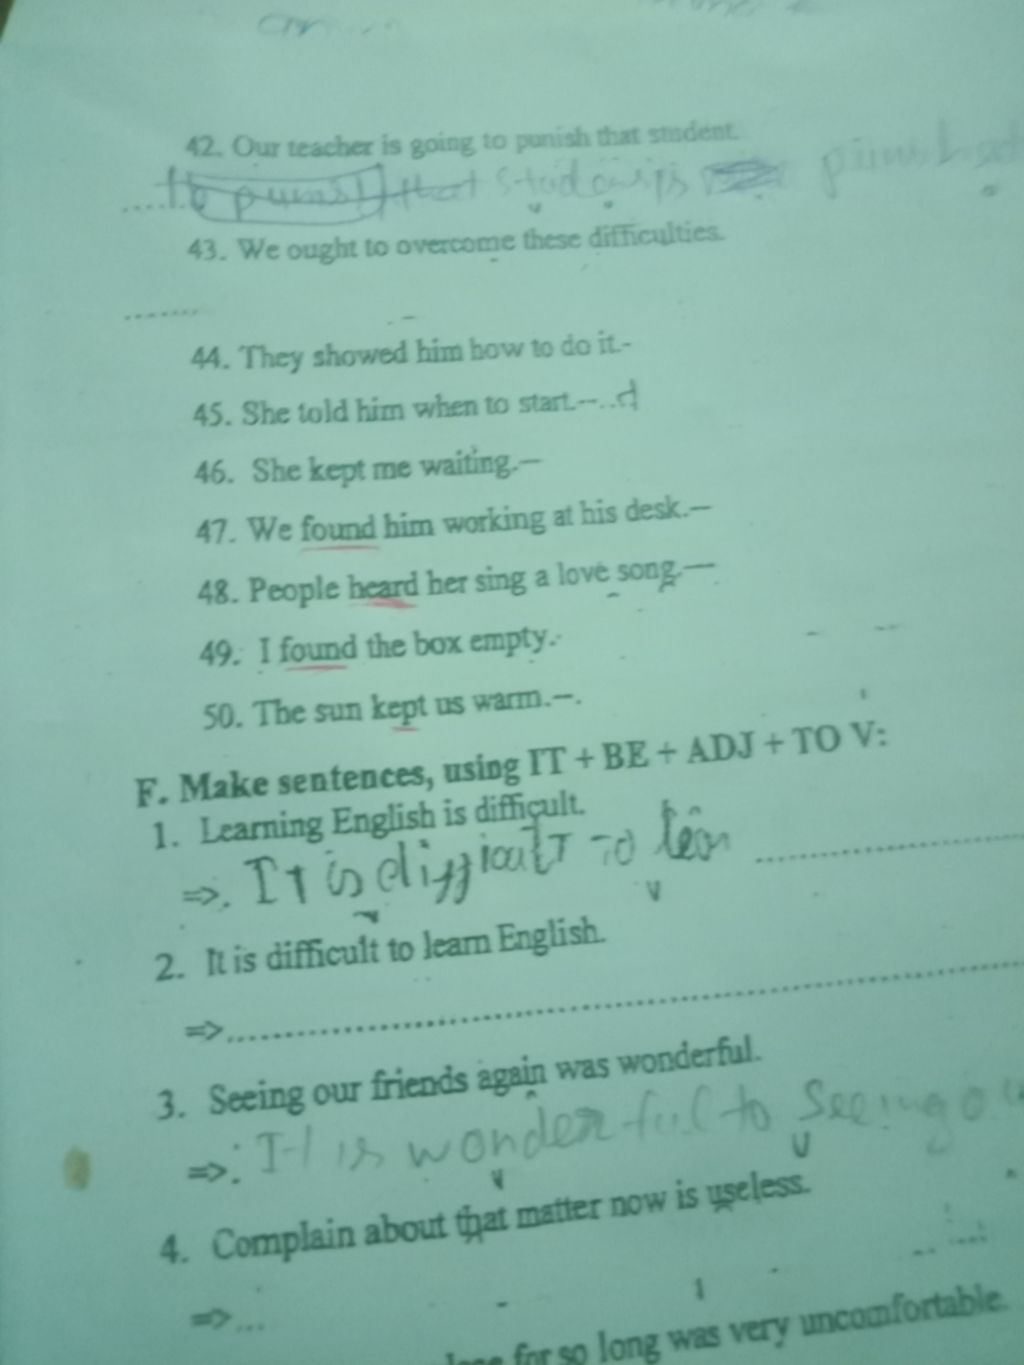 42. Our teacher is going to punish that student.
43. We ought to overcome these difficulties.
........
44. They showed him how to do it.-
45. She told him when to start.--..d
46. She kept me waiting.—
47. We found him working at his desk.—
48. People heard her sing a love song.—
49. I found the box empty.-
50. The sun kept us warm.—.
F. Make sentences, using IT + BE + ADJ + TO V:
1. Learning English is difficult.
=>. It is difficult to
2. It is difficult to learn English.
=>....................................................
3. Seeing our friends again was wonderful.
=>. It is wonderful to Seeing
4. Complain about that matter now is useless.
=>...
for so long was very uncomfortable.